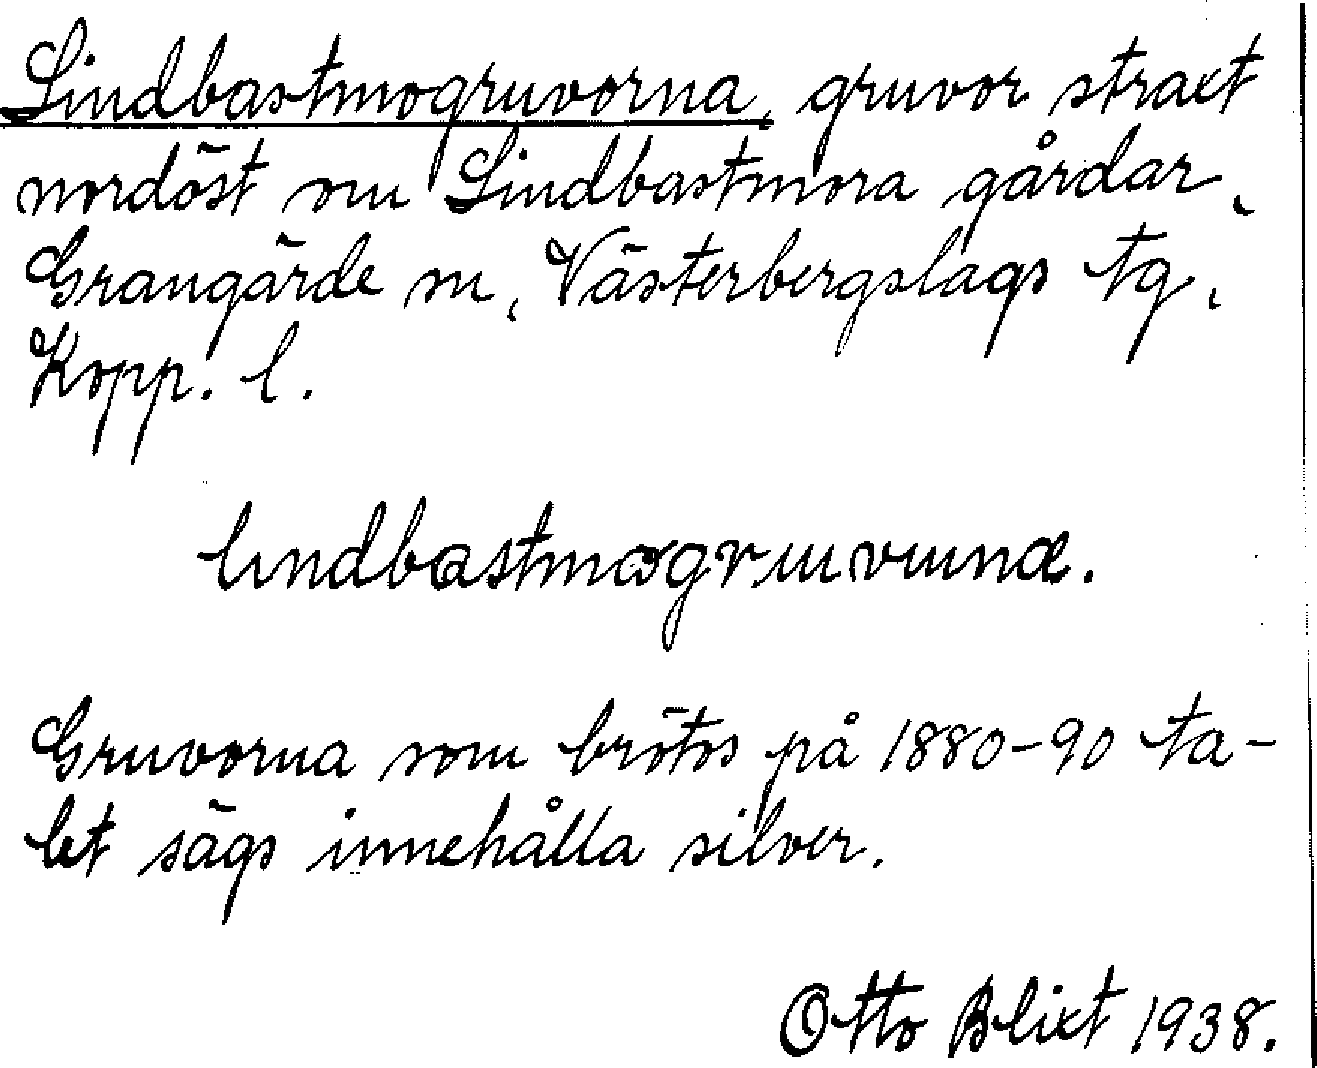 Lindbastmogruvorna, gruvor straxt
nordöst om Lindbastmora gårdar,
Grangärde sn, Västerbergslags tg,
Kopp. l.
lindbastmogruvuna.
Gruvorna som brötos på 1880-90 ta-
let sägs innehålla silver.
Otto Blixt 1938.